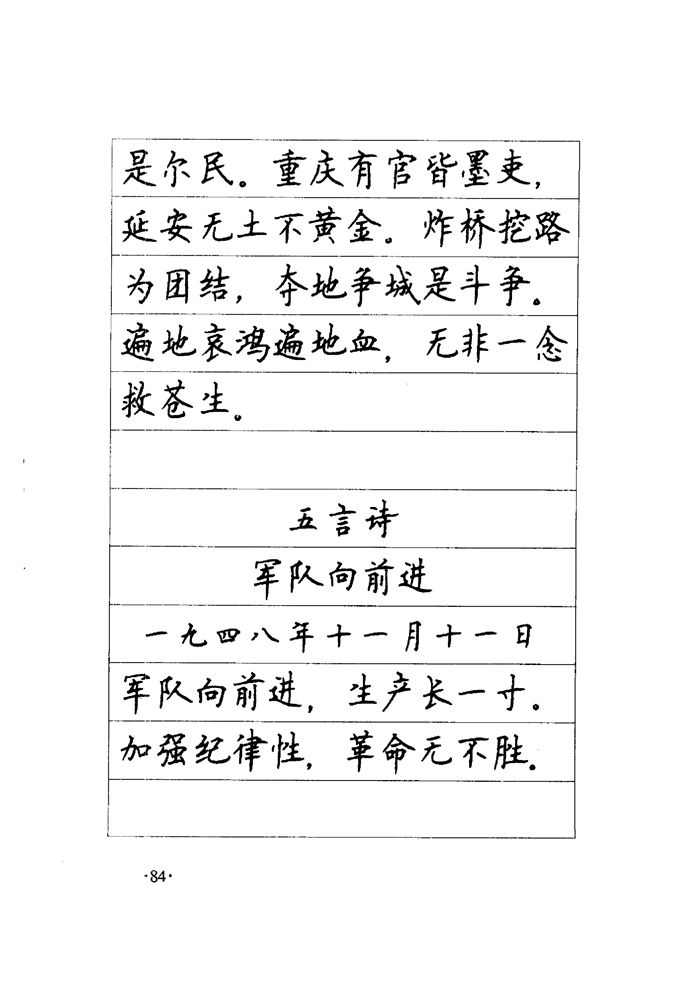 是尔民。重庆有官皆墨吏，
延安无土不黄金。炸桥挖路
为团结，夺地争城是斗争。
遍地哀鸿遍地血，无非一念
救苍生。
五言诗
军队向前进
一九四八年十一月十一日
军队向前进，生产长一寸。
加强纪律性，革命无不胜。
·84·